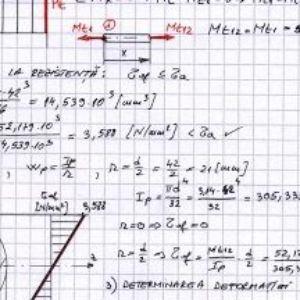 Pt
Mt1 ① Mt12 Mt12 = Mt1 =
x
LA REZISTENȚĂ: τef ≤ τa
42³ = 14,539·10³ [mm³]
52,179·10³ = 3,588 [N/mm²] < τa ✓
14,539·10³
, Wp = Ip/r , r = d/2 = 42/2 = 21 [mm]
Ip = πd⁴/32 = 3,14·42⁴/32 = 305,33
τef [N/mm²] 3,588 r=0 ⇒ τef=0
r = d/2 ⇒ τef = Mt12/Ip · d/2 = 52,17
305,
3) DETERMINAREA DEFORMAȚIEI